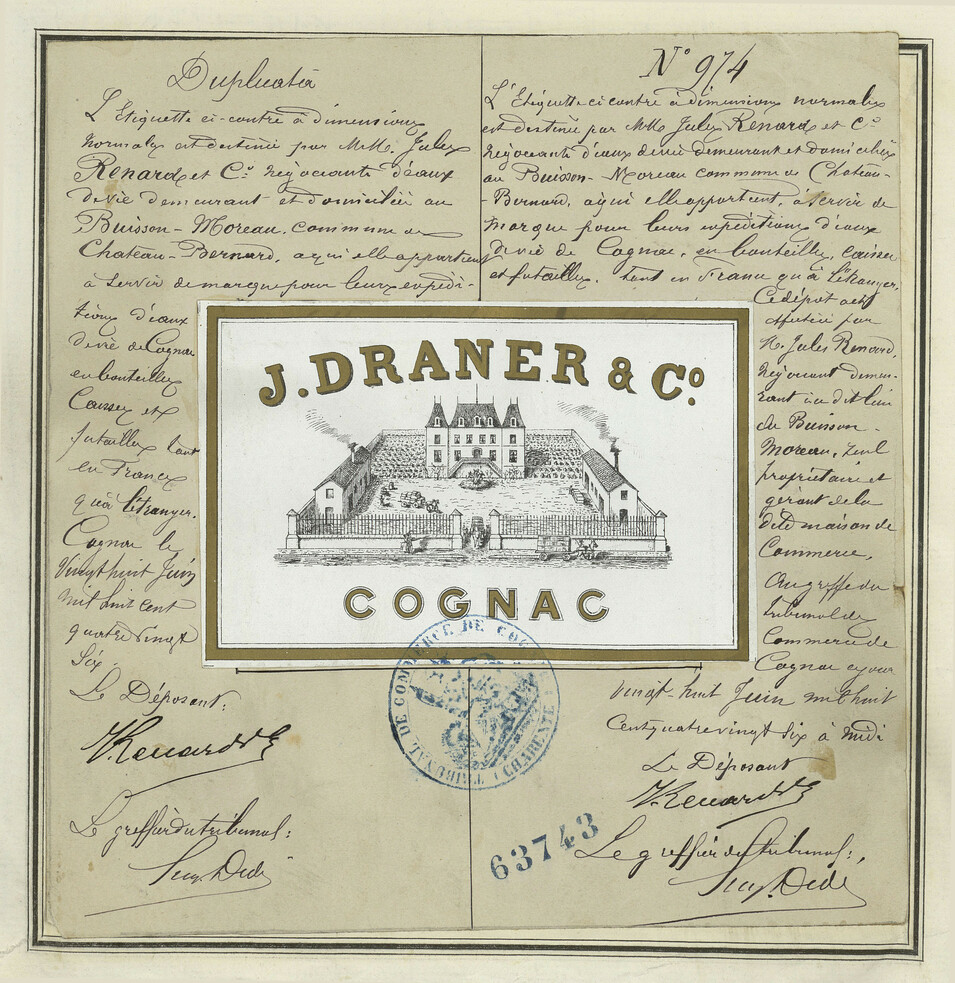 Duplicata
L'Etiquette ci-contre à dimensions
normales est destinée par MM. Jules
Renard et Cie négociants d'eaux
de vie demeurant et domiciliés au
Buisson-Moreau, commune de
Chateau-Bernard, à qui elle appartient
à servir de marque pour leurs expédi-
tions d'eaux
de vie de Cognac
en bouteilles
Caisses et
futailles tant
en France
qu'à l'étranger.
Cognac le
Vingt huit Juin
mil huit cent
quatre vingt
Six.
Le Déposant:
J. Renard & Cie
Le greffier du tribunal:
N° 974
L'Etiquette ci contre à dimensions normales
est destinée par MM. Jules Renard et Cie
négociants d'eaux de vie demeurant et domiciliés
au Buisson-Moreau commune de Chateau-
Bernard, à qui elle appartient, à servir de
marque pour leurs expéditions d'eaux
de vie de Cognac, en bouteilles, caisses
et futailles, tant en France qu'à l'Etranger.
Ce dépôt a été
effectué par
M. Jules Renard,
négociant demeu-
rant au dit lieu
du Buisson-
Moreau, seul
propriétaire et
gérant de la
dite maison de
Commerce,
Au greffe du
tribunal de
Commerce de
Cognac ce jour
vingt huit Juin mil huit
cent quatre vingt six à midi
Le Déposant
J. Renard & Cie
Le greffier du tribunal:
J. DRANER & Co.
COGNAC
TRIBUNAL DE COMMERCE DE COGNAC (CHARENTE)
63743